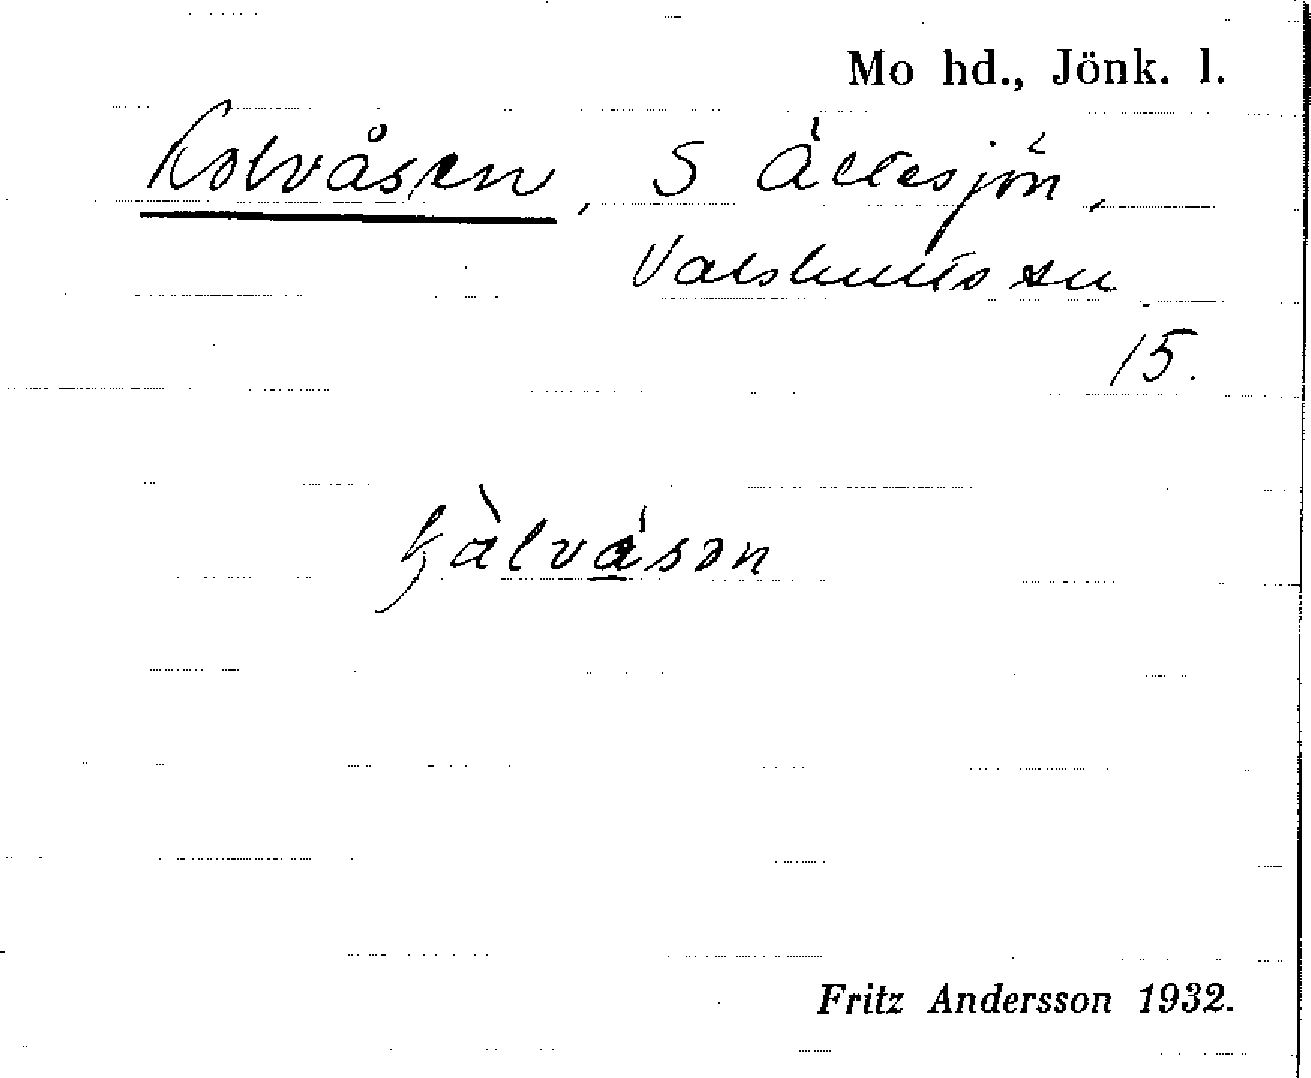 Mo hd., Jönk. l.
Kolvåsen, S Ältesjön,
Valshults sn
15.
kàlvåsən
Fritz Andersson 1932.